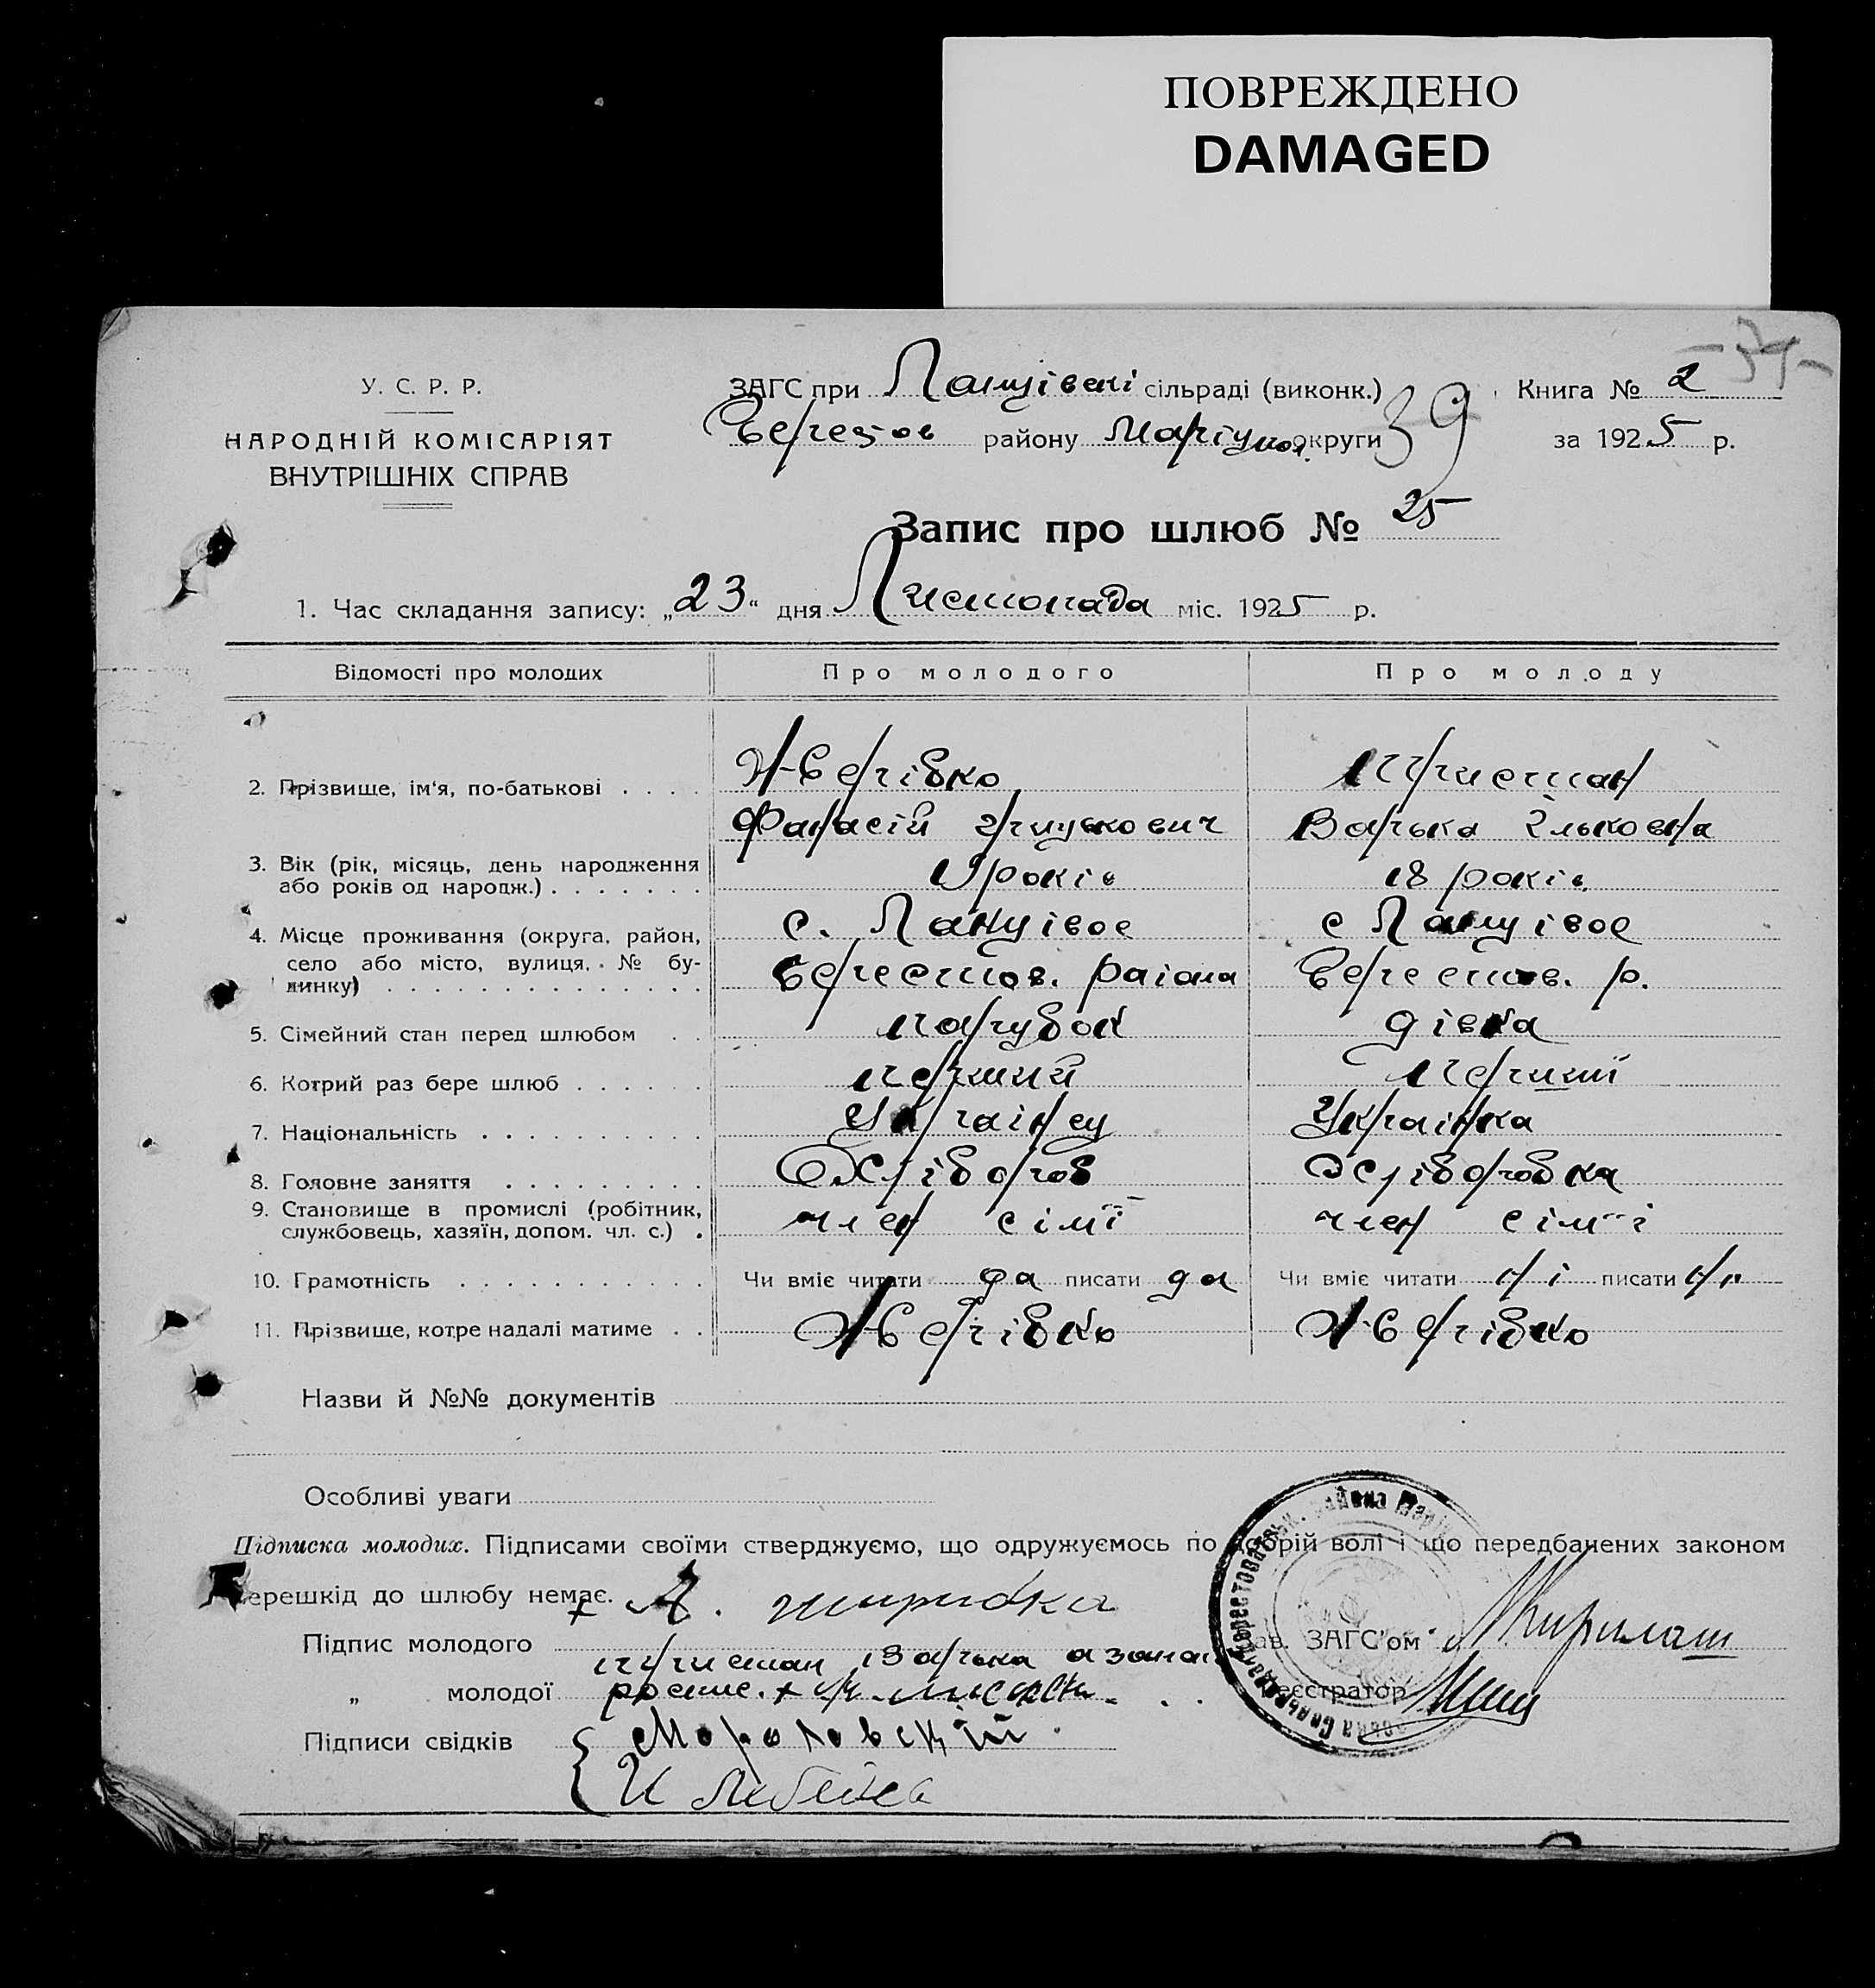 ПОВРЕЖДЕНО
DAMAGED
-34-
У. С. Р. Р.
НАРОДНІЙ КОМІСАРІЯТ
ВНУТРІШНІХ СПРАВ
ЗАГС при Ланцівскі сільраді (виконк.)
району Маріуп. округи
39
Книга № 2
за 1925 р.
Запис про шлюб № 25
1. Час складання запису: „23“ дня Листопада міс. 1925 р.
Відомості про молодих
Про молодого
Про молоду
2. Прізвище, ім'я, по-батькові . . . .
Жверібко
Фанасій Грицькович
Пристан
Варька Ільковна
3. Вік (рік, місяць, день народження
або років од народж.) . . . . . . .
19 років
18 років
4. Місце проживання (округа, район,
село або місто, вулиця, № бу-
динку) . . . . . . . . . . . . . .
с. Ланцівое
Берестов. раіона
с Ланцівое
Берестов. р.
5. Сімейний стан перед шлюбом . .
парубок
дівка
6. Котрий раз бере шлюб . . . . . .
перший
перший
7. Національність . . . . . . . . . .
Украінец
Украінка
8. Головне заняття . . . . . . . . .
Хлібороб
Хліборобка
9. Становище в промислі (робітник,
службовець, хазяїн, допом. чл. с.) .
член сімї
член сімї
10. Грамотність . . . . . . . . . . .
Чи вміє читати да писати да
Чи вміє читати ні писати ні
11. Прізвище, котре надалі матиме . .
Жверібко
Жверібко
Назви й №№ документів
Особливі уваги
Підписка молодих. Підписами своїми стверджуємо, що одружуємось по добрій волі і що передбачених законом
перешкід до шлюбу немає.
Підпис молодого
Зав. ЗАГС'ом
Пристан Варька
„ молодої
Реєстратор
Підписи свідків